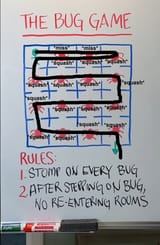 THE BUG GAME
*miss* *miss*
*squash* *squash*
*squash* *squash*
*squash* *squash*
*squash* *squash*
*squash*
*squash* *squash*
RULES:
1. STOMP ON EVERY BUG
2. AFTER STEPPING ON BUG,
NO RE-ENTERING ROOMS